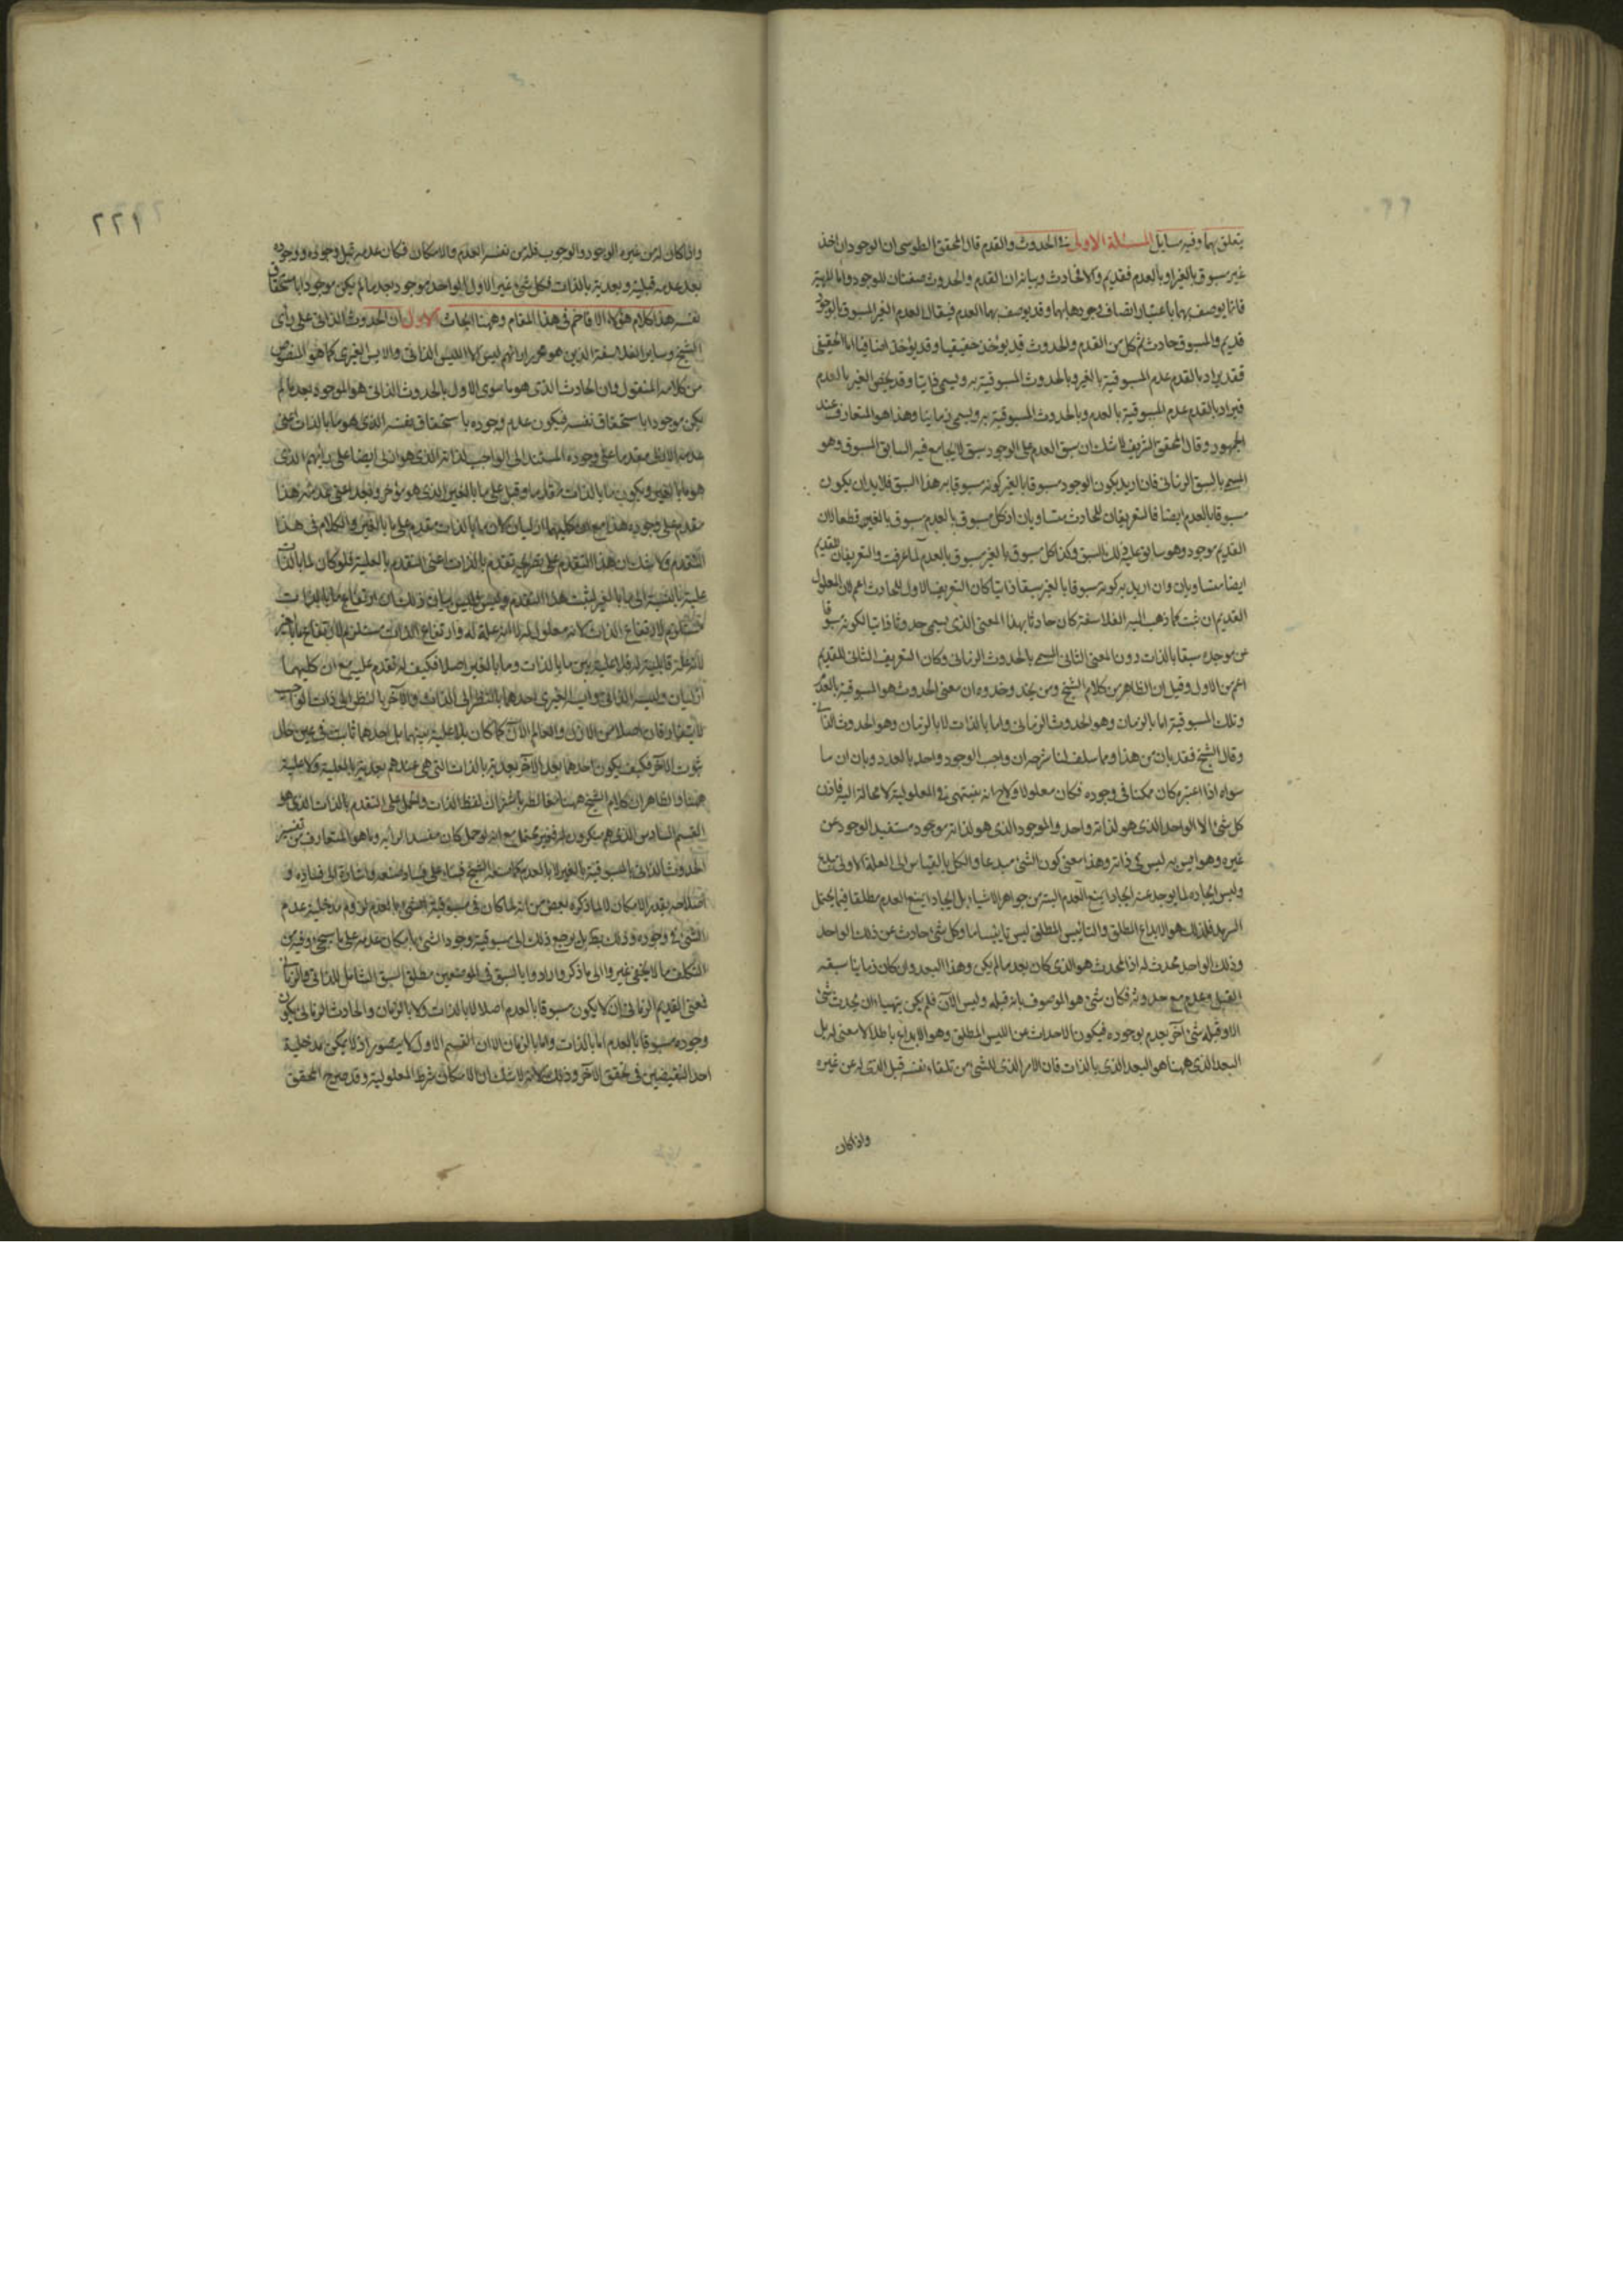 يتعلق بها وفيه مسايل المسئلة الاولى في الحدوث والقدم قال المحقق الطوسى ان الوجود ان اخذ
غير مسبوق بالغير او بالعدم فقديم والا فحادث وبيانه ان القدم والحدوث صفتان للوجود واما المهية
فانما يوصف بهما باعتبار اتصاف وجودها بهما وقد يوصف بهما العدم فيقال العدم الغير المسبوق بالوجود
قديم والمسبوق حادث ثم كل من القدم والحدوث قد يوخذ حقيقيا وقد يوخذ اضافيا اما الحقيقى
فقد يراد بالقدم عدم المسبوقية بالغير وبالحدوث المسبوقية به ويسمى ذاتيا وقد يخص الغير بالعدم
فيراد بالقدم عدم المسبوقية بالعدم وبالحدوث المسبوقية به ويسمى زمانيا وهذا هو المتعارف عند
الجمهور وقال المحقق الشريف لا شك ان سبق العدم على الوجود سبق لا يجامع فيه السابق المسبوق وهو
المسمى بالسبق الزمانى فان اريد بكون الوجود مسبوقا بالغير كونه مسبوقا به هذا السبق فلابد ان يكون
مسبوقا بالعدم ايضا فالتعريفان للحادث متساويان اذ كل مسبوق بالعدم مسبوق بالغير قطعا لان
القديم موجود وهو سابق عليه ذلك السبق وكذا كل مسبوق بالغير مسبوق بالعدم لما عرفت والتعريفان للقديم
ايضا متساويان وان اريد به كونه مسبوقا بالغير سبقا ذاتيا كان التعريف الاول للحادث اعم لان المعلول
القديم ان ثبت كما ذهب اليه الفلاسفة كان حادثا بهذا المعنى الذى يسمى حدوثا ذاتيا لكونه مسبوقا
من موجده سبقا بالذات دون المعنى الثانى المسمى بالحدوث الزمانى وكان التعريف الثانى للقديم
اعم من الاول وقيل ان الظاهر من كلام الشيخ ومن يحذو حذوه ان معنى الحدوث هو المسبوقية بالعدم
وتلك المسبوقية اما بالزمان وهو الحدوث الزمانى واما بالذات لا بالزمان وهو الحدوث الذاتى
وقال الشيخ فقد بان من هذا ومما سلف لنا شرحه ان واجب الوجود واحد بالعدد وبان ان ما
سواه اذا اعتبر كان ممكنا في وجوده فكان معلولا ولاح انه ينتهى في المعلولية لا محالة اليه فاذن
كل شئ الا الواحد الذى هو لذاته واحد والموجود الذى هو لذاته موجود مستفيد الوجود عن
غيره وهو ايس به ليس في ذاته وهذا معنى كون الشئ مبدعا والكل بالقياس الى العلة الاولى مبدع
وليس ايجاده لما يوجد عنه ايجادا يمنع العدم البتة من جواهر الاشياء بل ايجادا يمنع العدم مطلقا فيما يحتمل
السرمد فذلك هو الابداع المطلق والتأييس المطلق ليس تأييسا ما وكل شئ حادث عن ذلك الواحد
وذلك الواحد محدث له اذ المحدث هو الذى كان بعد ما لم يكن وهذا البعد وان كان زمانيا سبقه
القبل وعدم مع حدوثه فكان شئ هو الموصوف بانه قبله وليس الآن فلم يكن يتهيأ ان يحدث شئ
الا وقبله شئ آخر يعدم بوجوده فيكون الاحداث عن الليس المطلق وهو الابداع باطلا لا معنى له بل
البعد الذى ههنا هو البعد الذى بالذات فان الامر الذى للشئ من تلقاء نفسه قبل الذى له عن غيره
واذا كان
٢٢١
واذا كان له من غيره الوجود والوجوب فله من نفسه العدم والامكان فكان عدمه قبل وجوده ووجوده
بعد عدمه قبلية وبعدية بالذات فكل شئ غير الاول الواحد موجود بعد ما لم يكن موجودا باستحقاق
نفسه هذا كلام هؤلاء الافاخم فى هذا المقام وههنا ابحاث الاول ان الحدوث الذاتى على رأى
الشيخ وساير الفلاسفة الذين هو من ليس الا الليس الذاتى والايس الغيرى كما هو المنصوص
من كلامه المنقول وان الحادث الذى هو ما سوى الاول بالحدوث الذاتى هو الموجود بعد ما لم
يكن موجودا باستحقاق نفسه فيكون عدم وجوده باستحقاق نفسه الذى هو ما بالذات اعنى
عدمه الازلى مقدما على وجوده المستند الى الواجب لذاته الذى هو ازلى ايضا على رأيهم الذى
هو ما بالغير ويكون ما بالذات مقدما وقبل على ما بالغير الذى هو مؤخر وبعد اعنى عدمه هذا
مقدم على وجوده هذا مع ان كليهما ازليان لان ما بالذات مقدم على ما بالغير والكلام فى هذا
التقدم ولا شك ان هذا التقدم على تقدم بالذات اعنى التقدم بالعلية فلو كان لما بالذات
علية بالنسبة الى ما بالغير لثبت هذا التقدم وليس فليس بيان ذلك ان ارتفاع ما بالذات
مستلزم لارتفاع الذات لانه معلول له لا انه علة له وارتفاع الذات مستلزم لارتفاع ما بالغير
لانه علة قابلية له فلا علية بين ما بالذات وما بالغير اصلا فكيف له تقدم عليه مع ان كليهما
ازليان وليس الذاتى وايس الغيرى احدهما بالنظر الى الذات والآخر بالنظر الى ذات الواجب
لا يفترقان اصلا من الازل والعالم الآن كما كان بلا علية بينهما بل احدهما ثابت في عين حال
ثبوت الآخر فكيف يكون احدهما بعد الآخر بعدية بالذات التى هى عندهم بعدية بالعلية ولا علية
ههنا والظاهر ان كلام الشيخ ههنا مغالطة باشتراك لفظ الذات والحمل على التقدم بالذات الذى هو
القسم السادس الذى هم ينكرونه مع انه لو حمل كان مفسدا لرأيه وما هو المتعارف من تفسير
الحدوث الذاتى بالمسبوقية بالغير لا بالعدم
اصلاحه بقدر الامكان لا لما ذكره بعض من انه لما كان فى مسبوقية الشئ بالعدم لزوم مدخلية عدم
الشئ في وجوده وذلك بل يرجع ذلك الى مسبوقية وجود الشئ بامكان عدمه على ما سيجئ وفيه من
التكلف ما لا يخفى غيروا الى ما ذكر وارادوا بالسبق فى الموضعين مطلق السبق الشامل للذاتى والزمانى
فمعنى القديم الزمانى ان لا يكون مسبوقا بالعدم اصلا لا بالذات ولا بالزمان والحادث الزمانى يكون
وجوده مسبوقا بالعدم اما بالذات واما بالزمان الا ان القسم الاول لا يتصور اذ لا يمكن مدخلية
احد النقيضين فى تحقق الآخر وذلك لانه لا شك ان الامكان شرط المعلولية وقد صرح المحقق